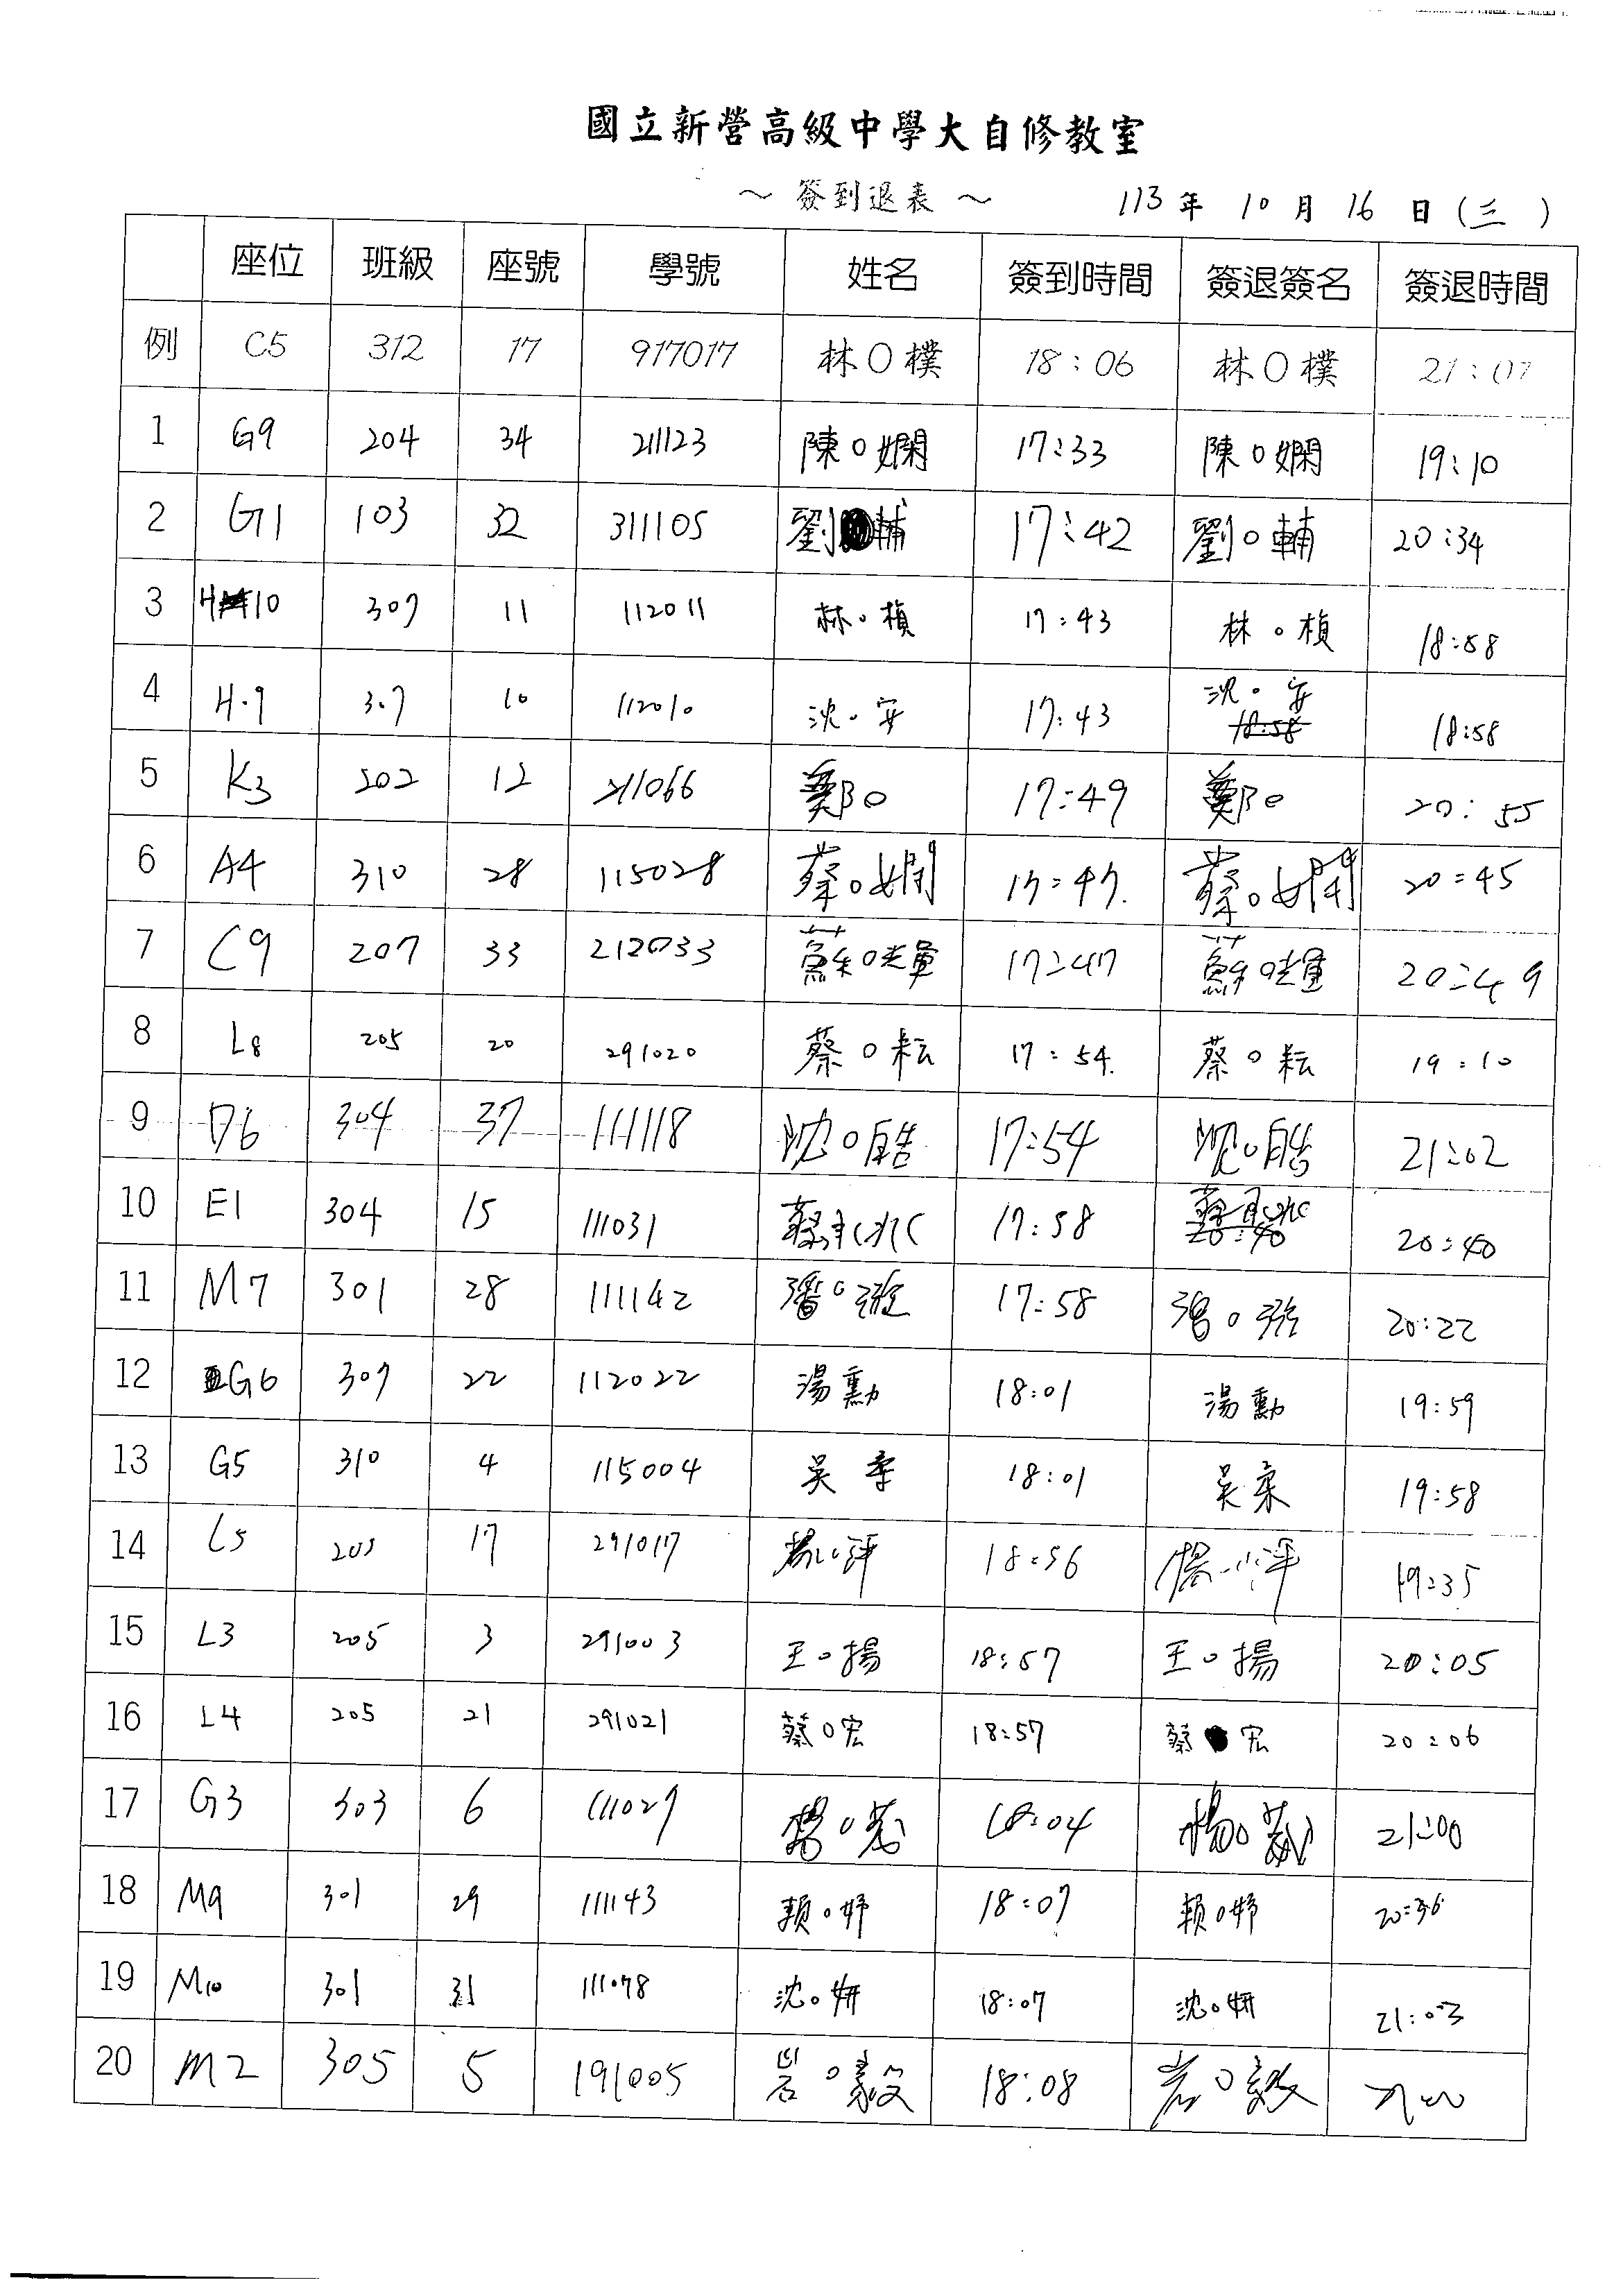 國立新營高級中學大自修教室
~ 簽到退表 ~ 113 年 10 月 16 日 (三)
座位 班級 座號 學號 姓名 簽到時間 簽退簽名 簽退時間
例 C5 312 17 917017 林〇樸 18:06 林〇樸 21:07
1 G9 204 34 211123 陳〇嫻 17:33 陳〇嫻 19:10
2 G1 103 32 311105 劉 輔 17:42 劉〇輔 20:34
3 H10 307 11 112011 林〇楨 17:43 林〇楨 18:58
4 H.9 307 10 112010 沈〇安 17:43 沈〇安 18:58
5 K3 202 12 211066 鄭〇 17:49 鄭〇 20:55
6 A4 310 28 115028 蔡〇嫻 17:47. 蔡〇嫻 20:45
7 C9 207 33 212033 蘇〇輝 17:47 蘇〇輝 20:49
8 L8 205 20 291020 蔡〇耘 17:54. 蔡〇耘 19:10
9 D6 304 37 111118 沈〇皓 17:54 沈〇皓 21:02
10 E1 304 15 111031 17:58 20:40
11 M7 301 28 111142 潘〇 17:58 潘〇 20:22
12 G6 307 22 112022 湯勳 18:01 湯勳 19:59
13 G5 310 4 115004 吳柔 18:01 吳柔 19:58
14 L5 205 17 291017 楊 18:56 楊 19:35
15 L3 205 3 291003 王〇揚 18:57 王〇揚 20:05
16 L4 205 21 291021 蔡〇宏 18:57 蔡 宏 20:06
17 G3 303 6 111027 楊〇 18:04 楊〇 21:00
18 M9 301 29 111143 賴〇妤 18:07 賴〇妤 20:36
19 M10 301 31 111078 沈〇妍 18:07 沈〇妍 21:03
20 M2 305 5 191005 岩〇毅 18:08 岩〇毅